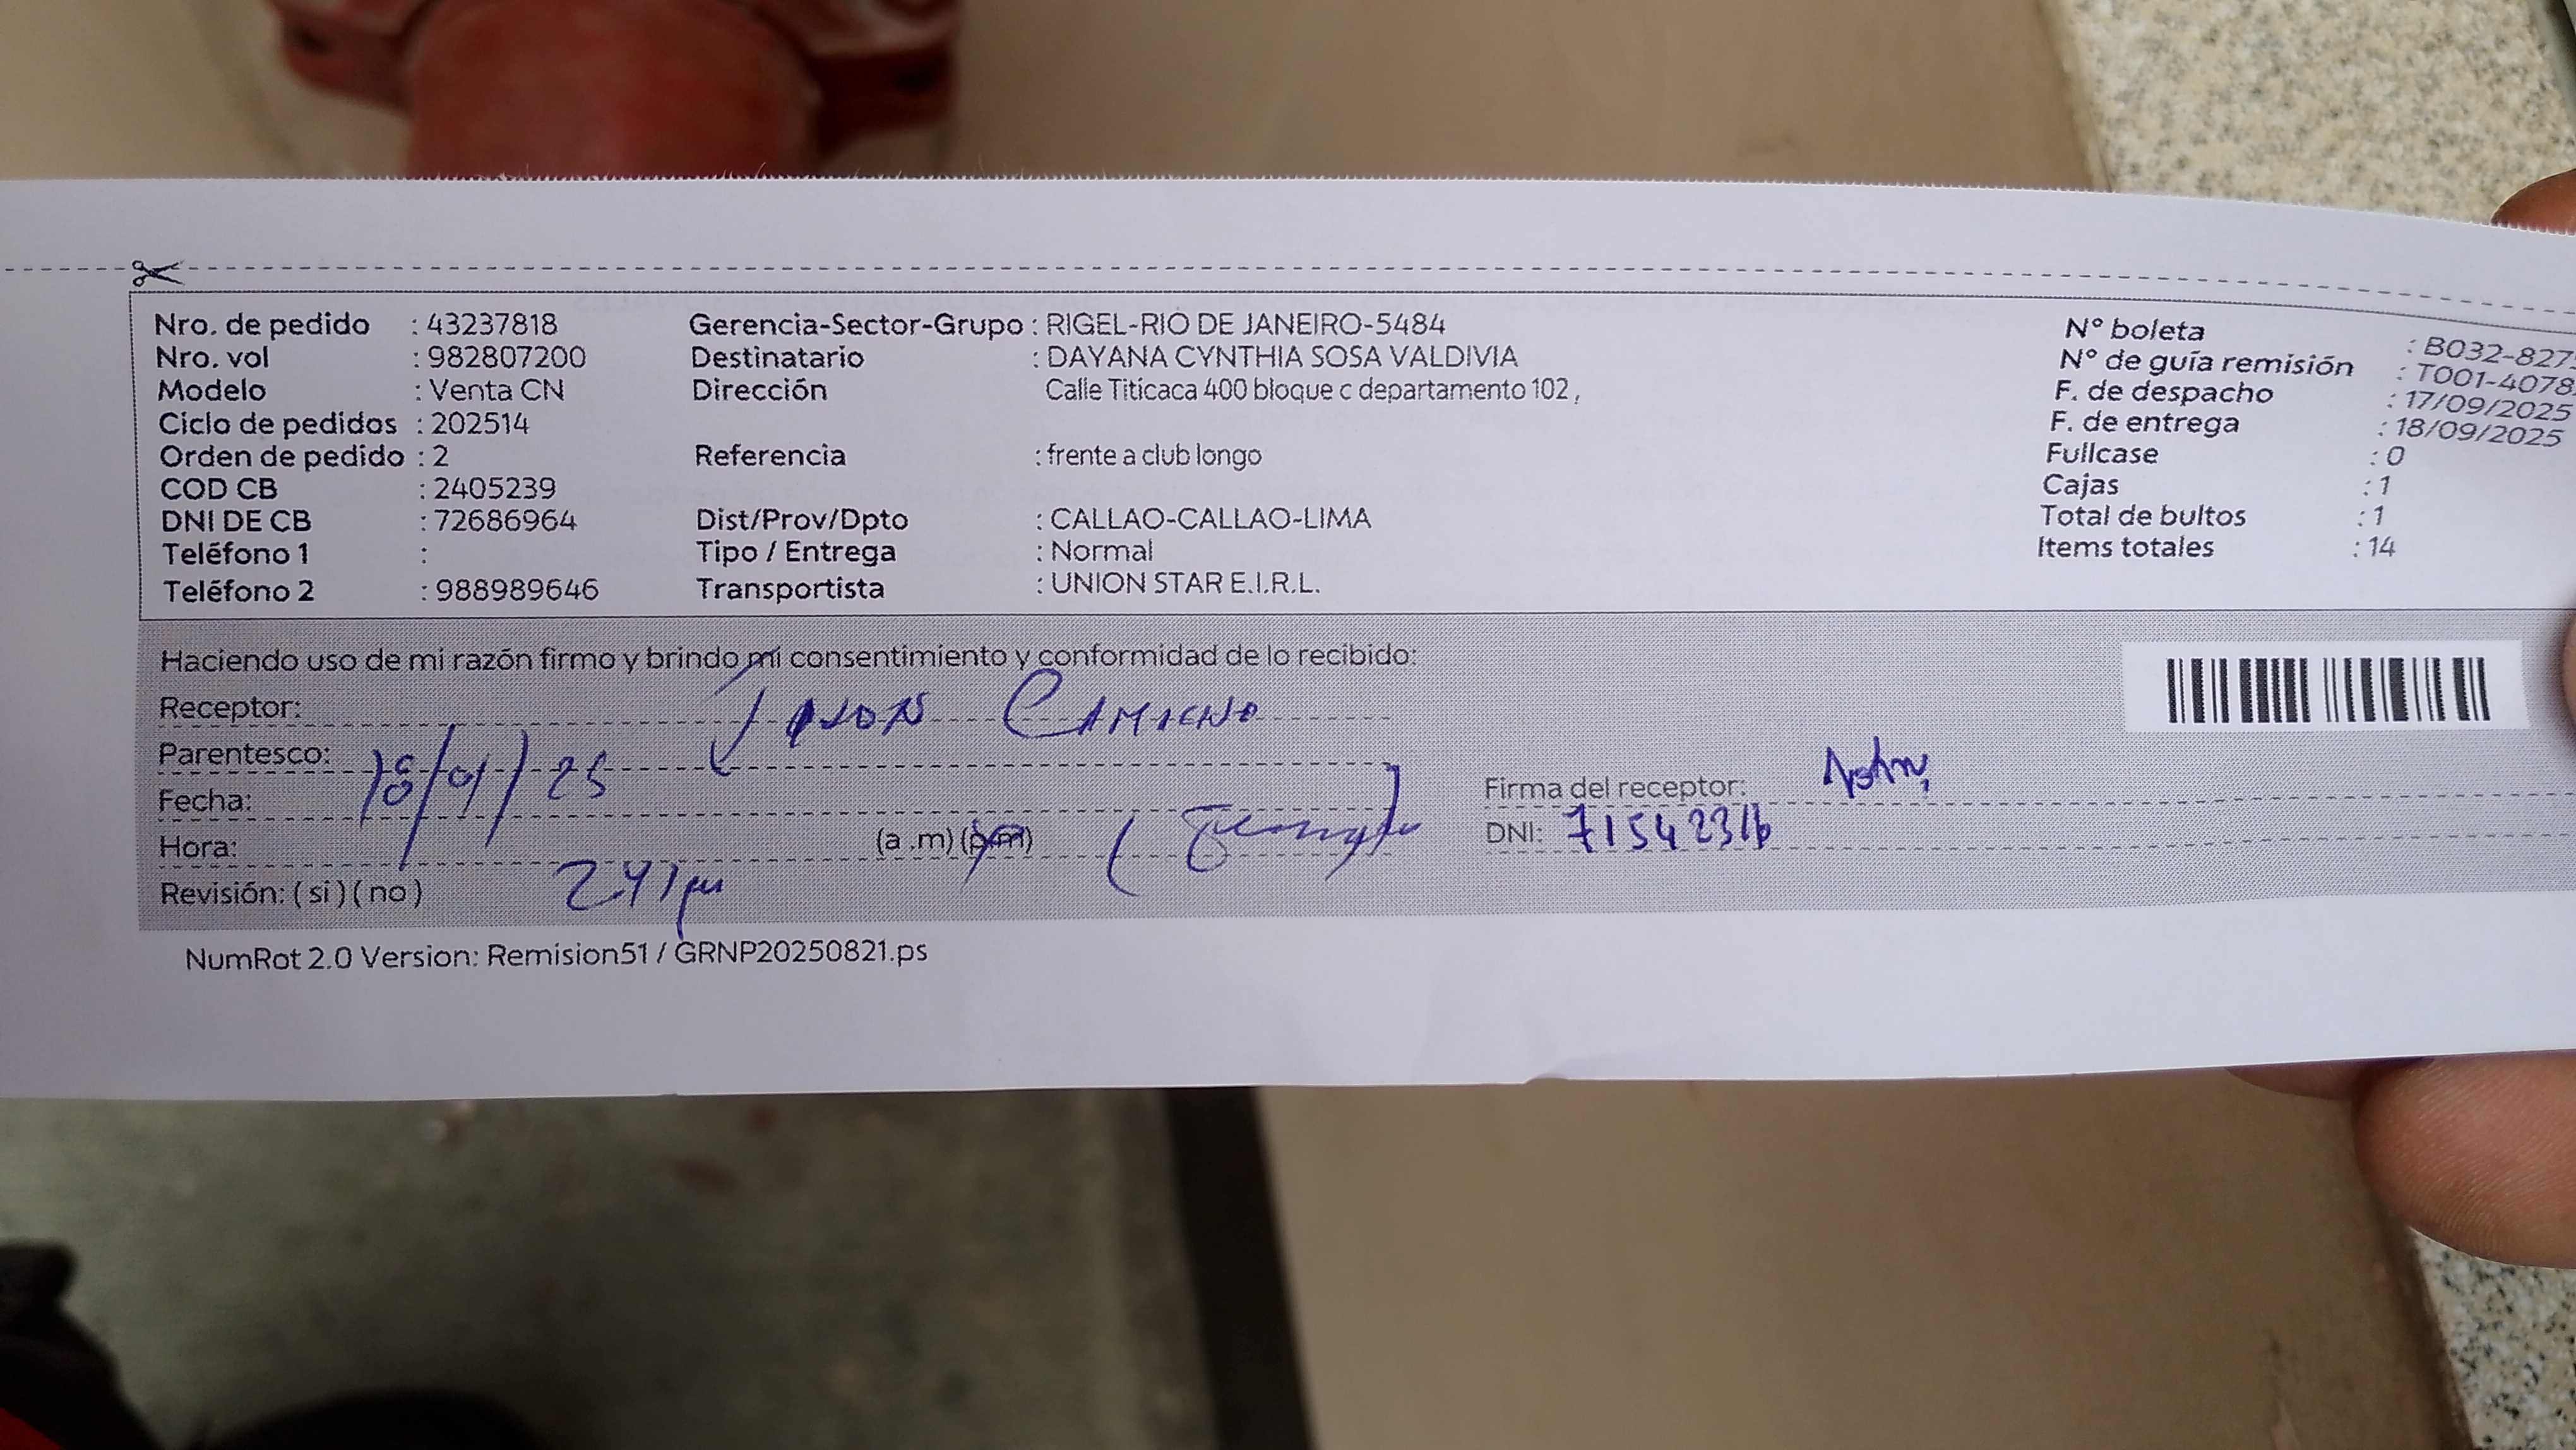 Nro. de pedido : 43237818
Nro. vol : 982807200
Modelo : Venta CN
Ciclo de pedidos : 202514
Orden de pedido : 2
COD CB : 2405239
DNI DE CB : 72686964
Teléfono 1 :
Teléfono 2 : 988989646
Gerencia-Sector-Grupo : RIGEL-RIO DE JANEIRO-5484
Destinatario : DAYANA CYNTHIA SOSA VALDIVIA
Dirección Calle Titicaca 400 bloque c departamento 102 ,
Referencia : frente a club longo
Dist/Prov/Dpto : CALLAO-CALLAO-LIMA
Tipo / Entrega : Normal
Transportista : UNION STAR E.I.R.L.
N° boleta : B032-827
N° de guía remisión : T001-4078
F. de despacho : 17/09/2025
F. de entrega : 18/09/2025
Fullcase : 0
Cajas : 1
Total de bultos : 1
Items totales : 14
Haciendo uso de mi razón firmo y brindo mi consentimiento y conformidad de lo recibido:
Receptor:
Parentesco:
Fecha: 18/09/25
Hora: (a .m) (p.m)
241pm
Revisión: ( si ) ( no )
Firma del receptor:
DNI: 71542316
NumRot 2.0 Version: Remision51 / GRNP20250821.ps